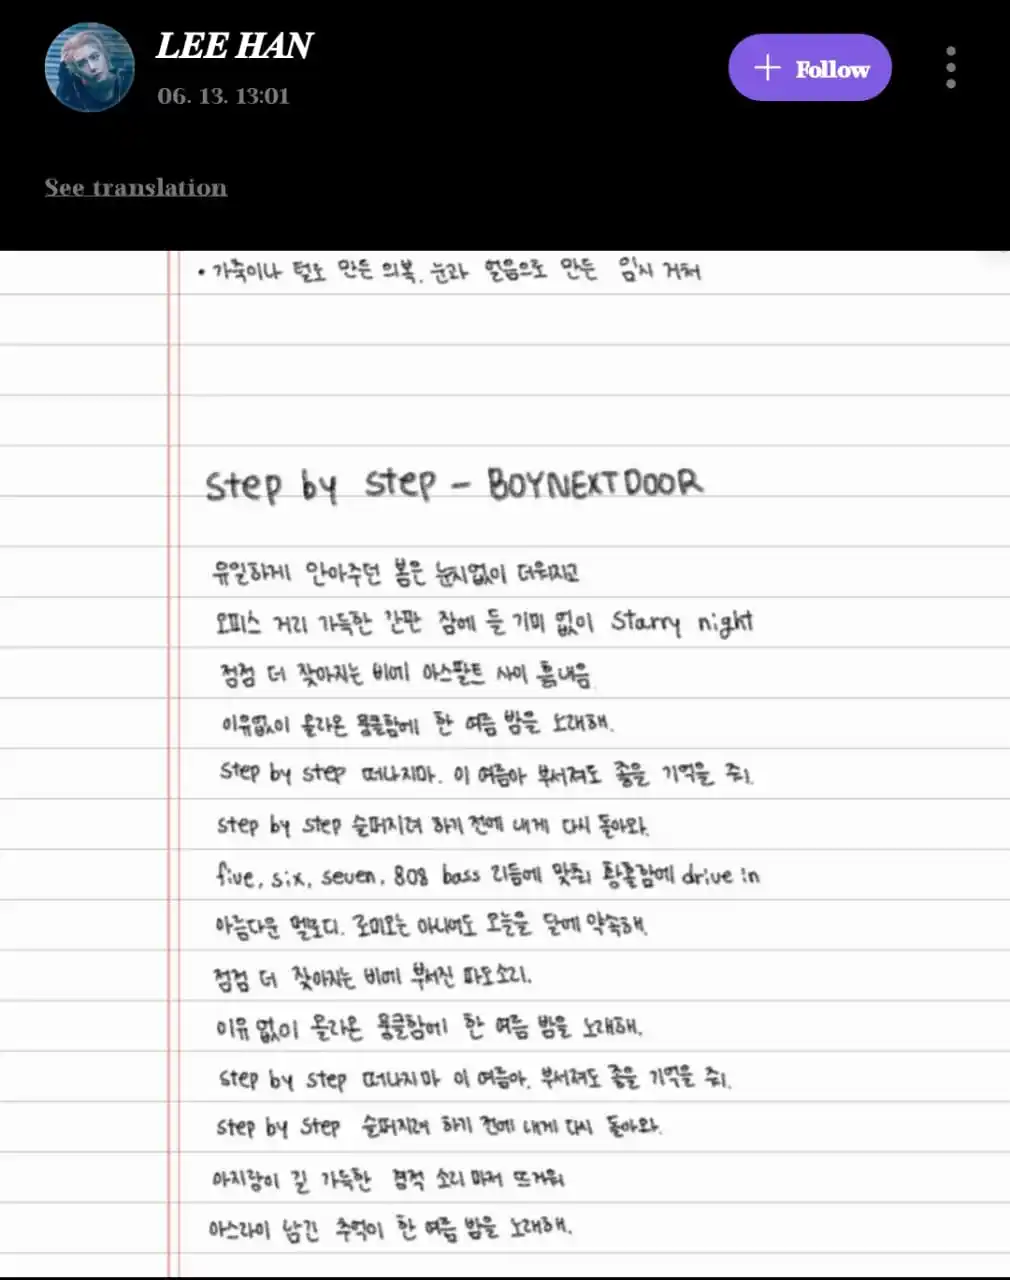 LEE HAN
06. 13. 13:01
+ Follow
See translation
• 가죽이나 털로 만든 의복, 눈과 얼음으로 만든 임시 거처
step by step - BOYNEXTDOOR
유일하게 안아주던 봄은 눈치없이 더워지고
오피스 거리 가득한 간판 잠에 들 기미 없이 Starry night
점점 더 잦아지는 비에 아스팔트 사이 흙내음
이유없이 올라온 뭉클함에 한 여름 밤을 노래해.
step by step 떠나지마. 이 여름아 부서져도 좋을 기억을 줘.
step by step 슬퍼지려 하기 전에 내게 다시 돌아와.
five, six, seven, 808 bass 리듬에 맞춰 황홀함에 drive in
아름다운 멜로디. 로미오는 아니여도 오늘을 달에 약속해.
점점 더 잦아지는 비에 부서진 파도소리.
이유 없이 올라온 뭉클함에 한 여름 밤을 노래해.
step by step 떠나지마 이 여름아. 부서져도 좋을 기억을 줘.
step by step 슬퍼지려 하기 전에 내게 다시 돌아와.
아지랑이 길 가득한 경적 소리마저 뜨거워
아스라이 남긴 추억이 한 여름 밤을 노래해.